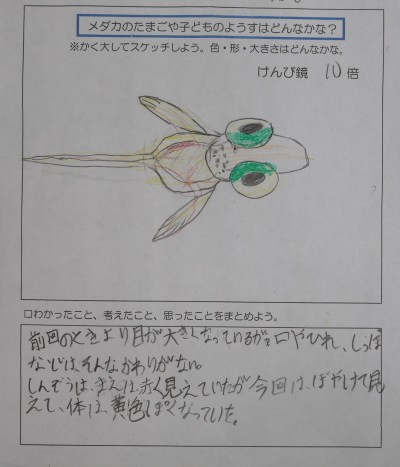 メダカのたまごや子どものようすはどんなかな？
※かく大してスケッチしよう。色・形・大きさはどんなかな。
けんび鏡 10 倍
□わかったこと、考えたこと、思ったことをまとめよう。
前回のときより目が大きくなっているが、口やひれ、しっぽ
などは、そんなかわりがない。
しんぞうは、まえは、赤く見えていたが今回は、ぼやけて見
えて、体は、黄色っぽくなっていた。